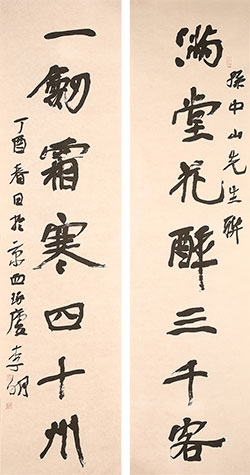 满堂花醉三千客
孫中山先生聯
一劍霜寒四十州
丁酉春日於京西琢廬李明